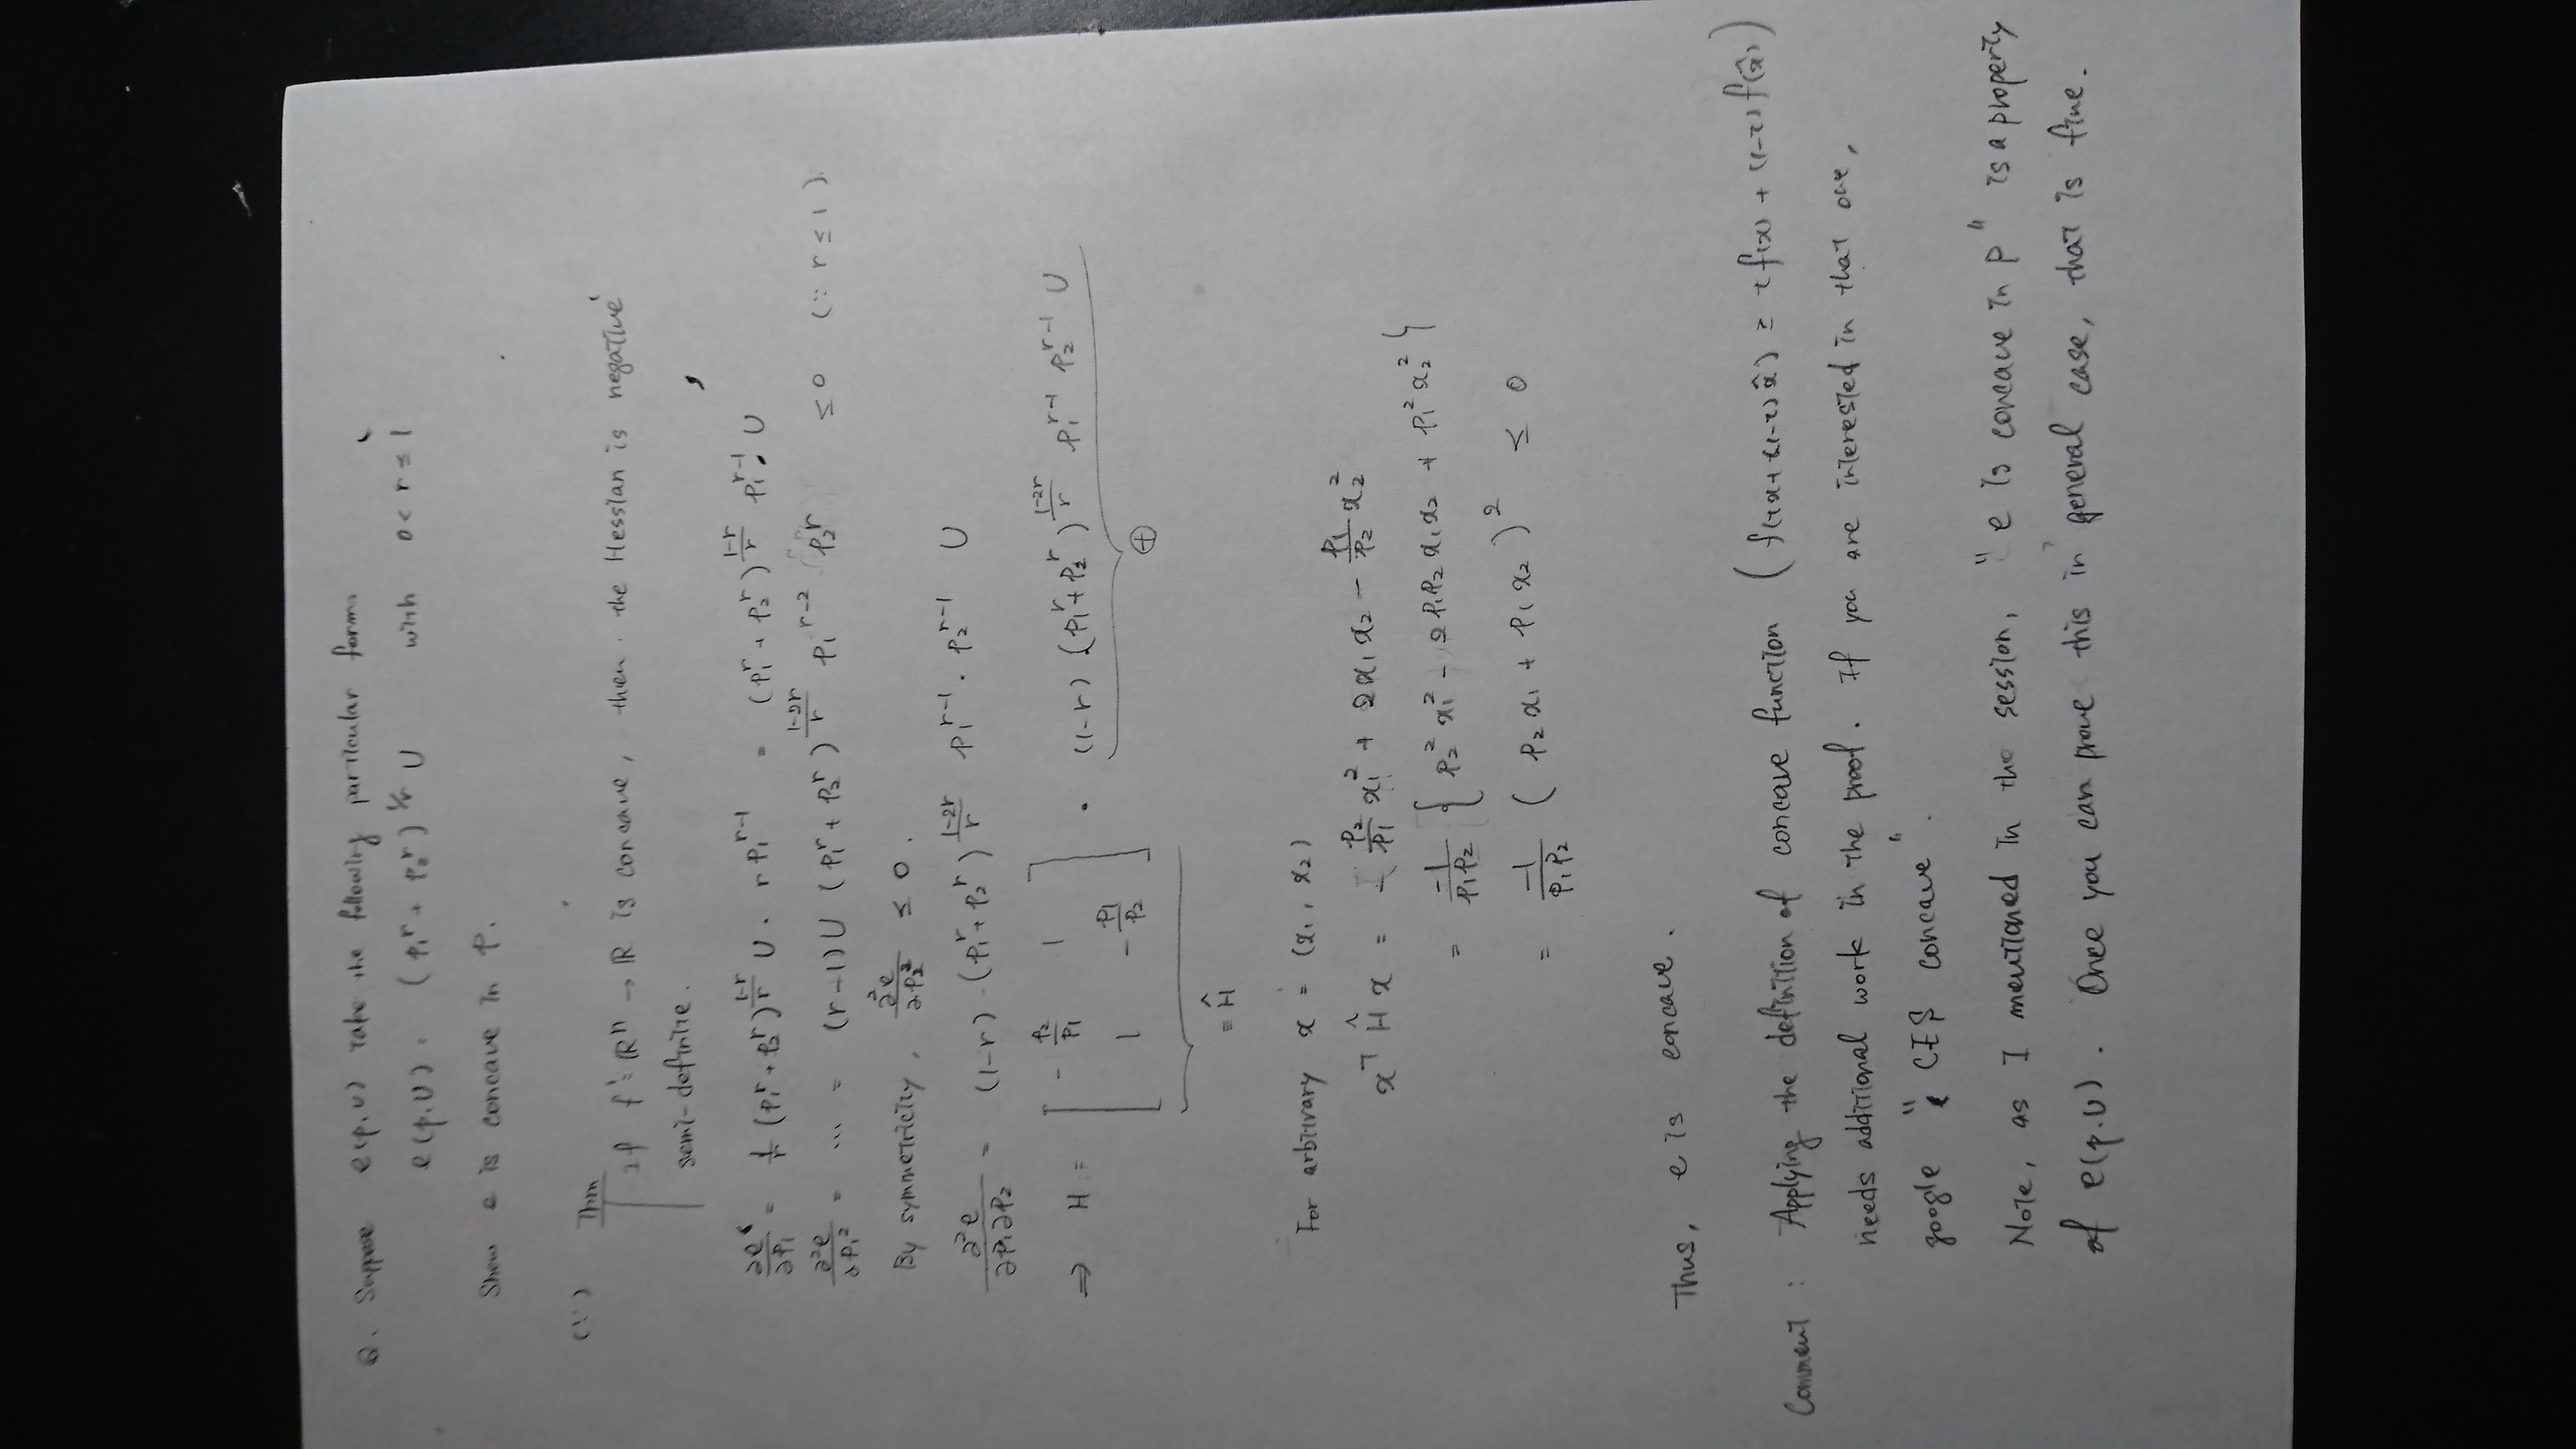 Q. Suppose e(p,U) take the following particular form.
e(p,U) = (p₁^r + p₂^r)^{1/r} U with 0 < r ≤ 1
Show e is concave in p.
(∵) Thm
If f: ℝⁿ → ℝ is concave, then the Hessian is negative
semi-definite.
∂e/∂p₁ = 1/r (p₁^r + p₂^r)^{(1-r)/r} U · r p₁^{r-1} = (p₁^r + p₂^r)^{(1-r)/r} p₁^{r-1} U
∂²e/∂p₁² = ... = (r-1) U (p₁^r + p₂^r)^{(1-2r)/r} p₁^{r-2} p₂^r ≤ 0 (∵ r ≤ 1).
By symmetricity, ∂²e/∂p₂² ≤ 0.
∂²e/∂p₁∂p₂ = (1-r) · (p₁^r + p₂^r)^{(1-2r)/r} p₁^{r-1} · p₂^{r-1} U
⇒ H = [ -p₂/p₁ 1 ; 1 -p₁/p₂ ] · (1-r) (p₁^r + p₂^r)^{(1-2r)/r} p₁^{r-1} p₂^{r-1} U
⊕
≡ Ĥ
For arbitrary x = (x₁, x₂)
x^T Ĥ x = - p₂/p₁ x₁² + 2x₁x₂ - p₁/p₂ x₂²
= -1/(p₁p₂) { p₂² x₁² - 2p₁p₂ x₁x₂ + p₁² x₂² }
= -1/(p₁p₂) ( p₂x₁ + p₁x₂ )² ≤ 0
Thus, e is concave.
Comment : Applying the definition of concave function ( f(τx+(1-τ)x̂) ≥ τf(x) + (1-τ)f(x̂) )
needs additional work in the proof. If you are interested in that one,
google " CES concave ".
Note, as I mentioned in the session, " e is concave in p " is a property
of e(p,U). Once you can prove this in general case, that is fine.